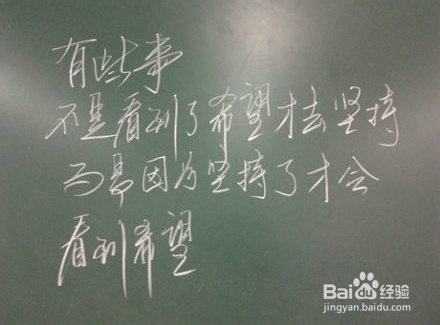 有些事
不是看到了希望才去坚持
而是因为坚持了才会
看到希望
Baidu经验
jingyan.baidu.com